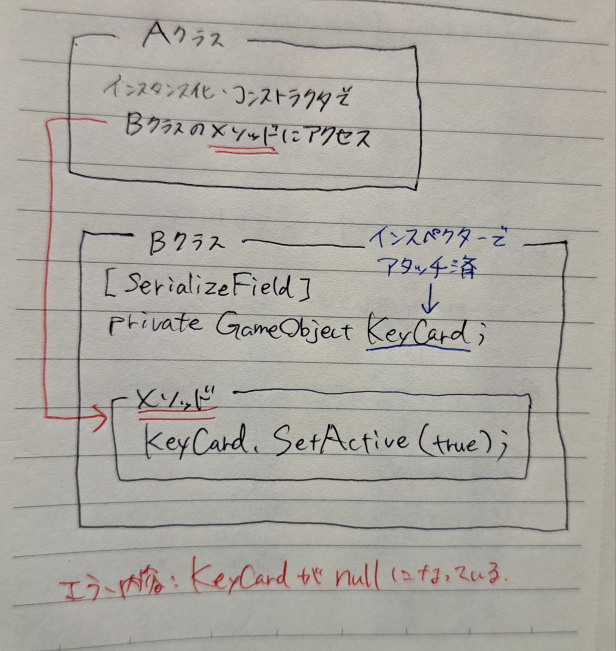 Aクラス
インスタンス化・コンストラクタで
Bクラスのメソッドにアクセス
Bクラス
インスペクターで
アタッチ済
[SerializeField]
private GameObject KeyCard;
メソッド
KeyCard.SetActive(true);
エラー内容:KeyCardがnullになっている.